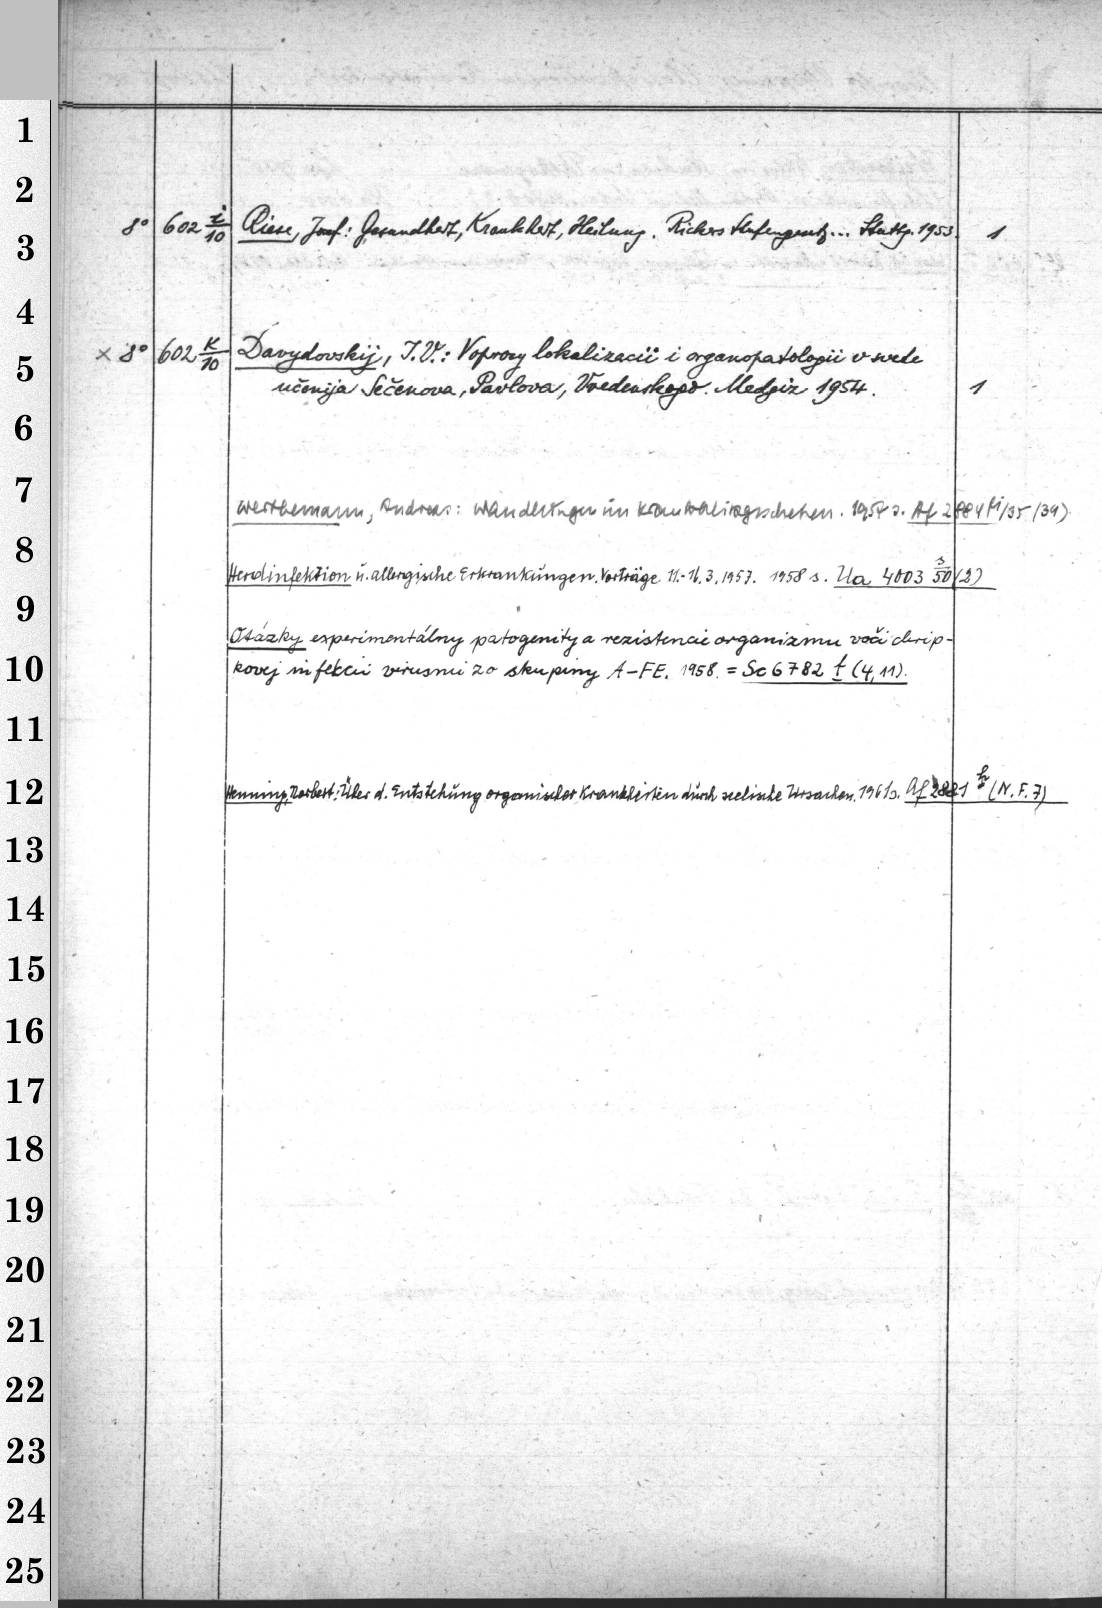 1
2
3
4
5
6
7
8
9
10
11
12
13
14
15
16
17
18
19
20
21
22
23
24
25
8° 602 i/10 Riese, Josef: Gesundheit, Krankheit, Heilung. Rickers Stufengesetz... Stuttg. 1953. 1
× 8° 602 K/10 Davydovskij, I. V.: Voprosy lokalizacii i organopatologii v svete
učenija Sečenova, Pavlova, Vvedenskogo. Medgiz 1954. 1
Werthemann, Andreas: Wandlungen im Krankheitsgeschehen. s. Af 2884
Herdinfektion u. allergische Erkrankungen. Vorträge 11.-16.3.1957. 1958 s. Ua 4003 s/50 (2)
Otázky experimentálny patogenity a rezistencie organizmu voči chrip-
kovej infekcii vírusmi zo skupiny A-FE. 1958. = Sc 6782 t (4,11).
Henning, Norbert: Über d. Entstehung organischer Krankheiten durch seelische Ursachen. 1961 s. Af 2881 h (N.F.7)